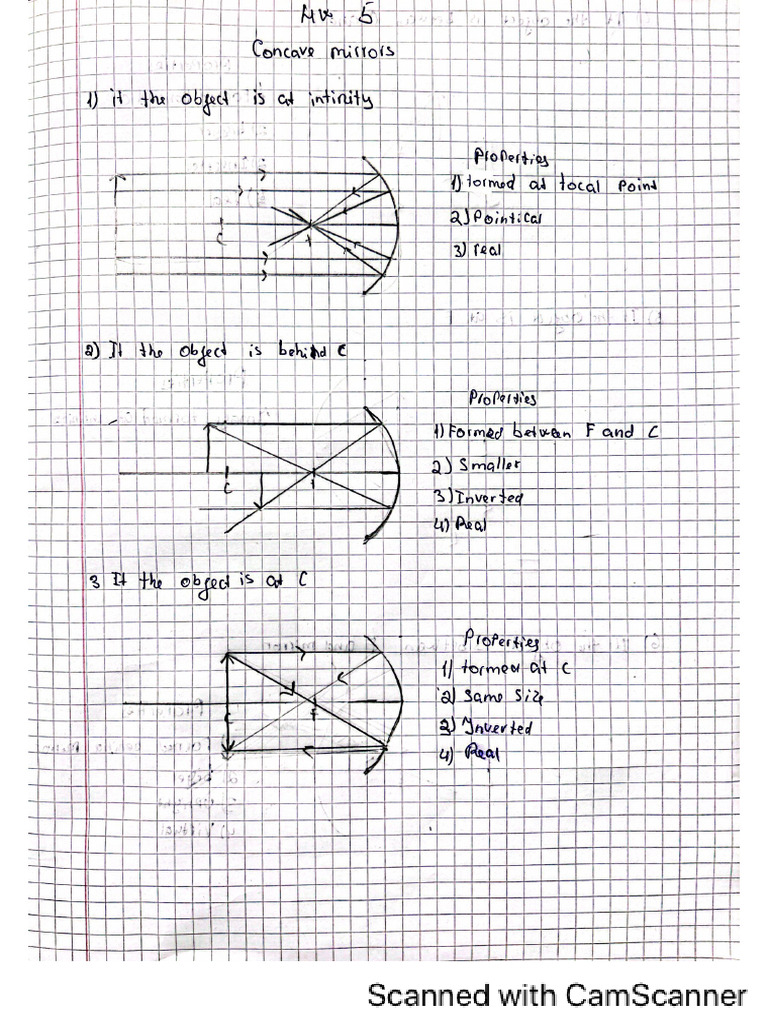 5
Concave mirrors
1) if the object is at infinity
Properties
1) formed at focal point
2) Pointical
3) real
C
f
2) If the object is behind C
Properties
1) Formed between F and C
2) Smaller
3) Inverted
4) Real
C
f
3 If the object is at C
Properties
1) formed at C
2) Same size
3) Inverted
4) Real
C
F
Scanned with CamScanner